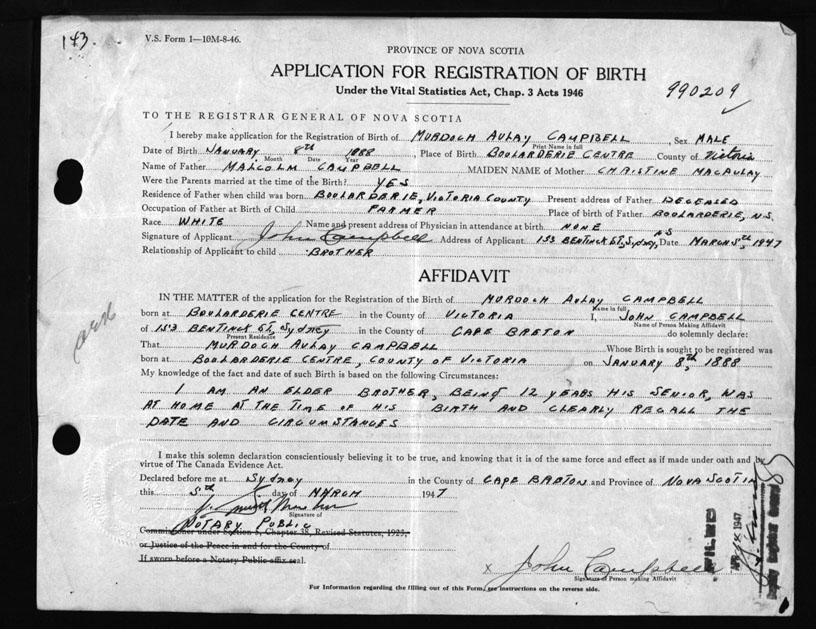 143.
V.S. Form 1—10M-8-46.
PROVINCE OF NOVA SCOTIA
APPLICATION FOR REGISTRATION OF BIRTH
Under the Vital Statistics Act, Chap. 3 Acts 1946
990209
TO THE REGISTRAR GENERAL OF NOVA SCOTIA
I hereby make application for the Registration of Birth of MURDOCH AULAY CAMPBELL, Sex MALE
Print Name in full
Date of Birth JANUARY 8th 1888, Place of Birth BOULARDERIE CENTRE County of Victoria
Month Date Year
Name of Father MALCOLM CAMPBELL MAIDEN NAME of Mother CHRISTINE MACAULAY
Were the Parents married at the time of the Birth? YES
Residence of Father when child was born BOULARDERIE, VICTORIA COUNTY Present address of Father DECEASED
Occupation of Father at Birth of Child FARMER Place of birth of Father BOULARDERIE, N.S.
Race WHITE Name and present address of Physician in attendance at birth NONE
Signature of Applicant John Campbell Address of Applicant 153 BENTINCK ST, Sydney, NS Date MARCH 5th, 1947
Relationship of Applicant to child BROTHER
AFFIDAVIT
IN THE MATTER of the application for the Registration of the Birth of MURDOCH AULAY CAMPBELL
Name in full
born at BOULARDERIE CENTRE in the County of VICTORIA I, JOHN CAMPBELL
Name of Person Making Affidavit
of 153 BENTINCK St, Sydney in the County of CAPE BRETON do solemnly declare:
Present Residence
That MURDOCH AULAY CAMPBELL Whose Birth is sought to be registered was
born at BOULARDERIE CENTRE, COUNTY OF VICTORIA on JANUARY 8th, 1888
My knowledge of the fact and date of such Birth is based on the following Circumstances:
I AM AN ELDER BROTHER, BEING 12 YEARS HIS SENIOR, WAS
AT HOME AT THE TIME OF HIS BIRTH AND CLEARLY RECALL THE
DATE AND CIRCUMSTANCES
I make this solemn declaration conscientiously believing it to be true, and knowing that it is of the same force and effect as if made under oath and by
virtue of The Canada Evidence Act.
Declared before me at Sydney in the County of CAPE BRETON and Province of NOVA SCOTIA
this 5th day of MARCH 1947
Signature of
NOTARY PUBLIC
Commissioner under Section 5, Chapter 38, Revised Statutes, 1923,
or Justice of the Peace in and for the County of
If sworn before a Notary Public affix seal.
x John Campbell
Signature of Person making Affidavit
For Information regarding the filling out of this Form, see instructions on the reverse side.
1947
Deputy Registrar General